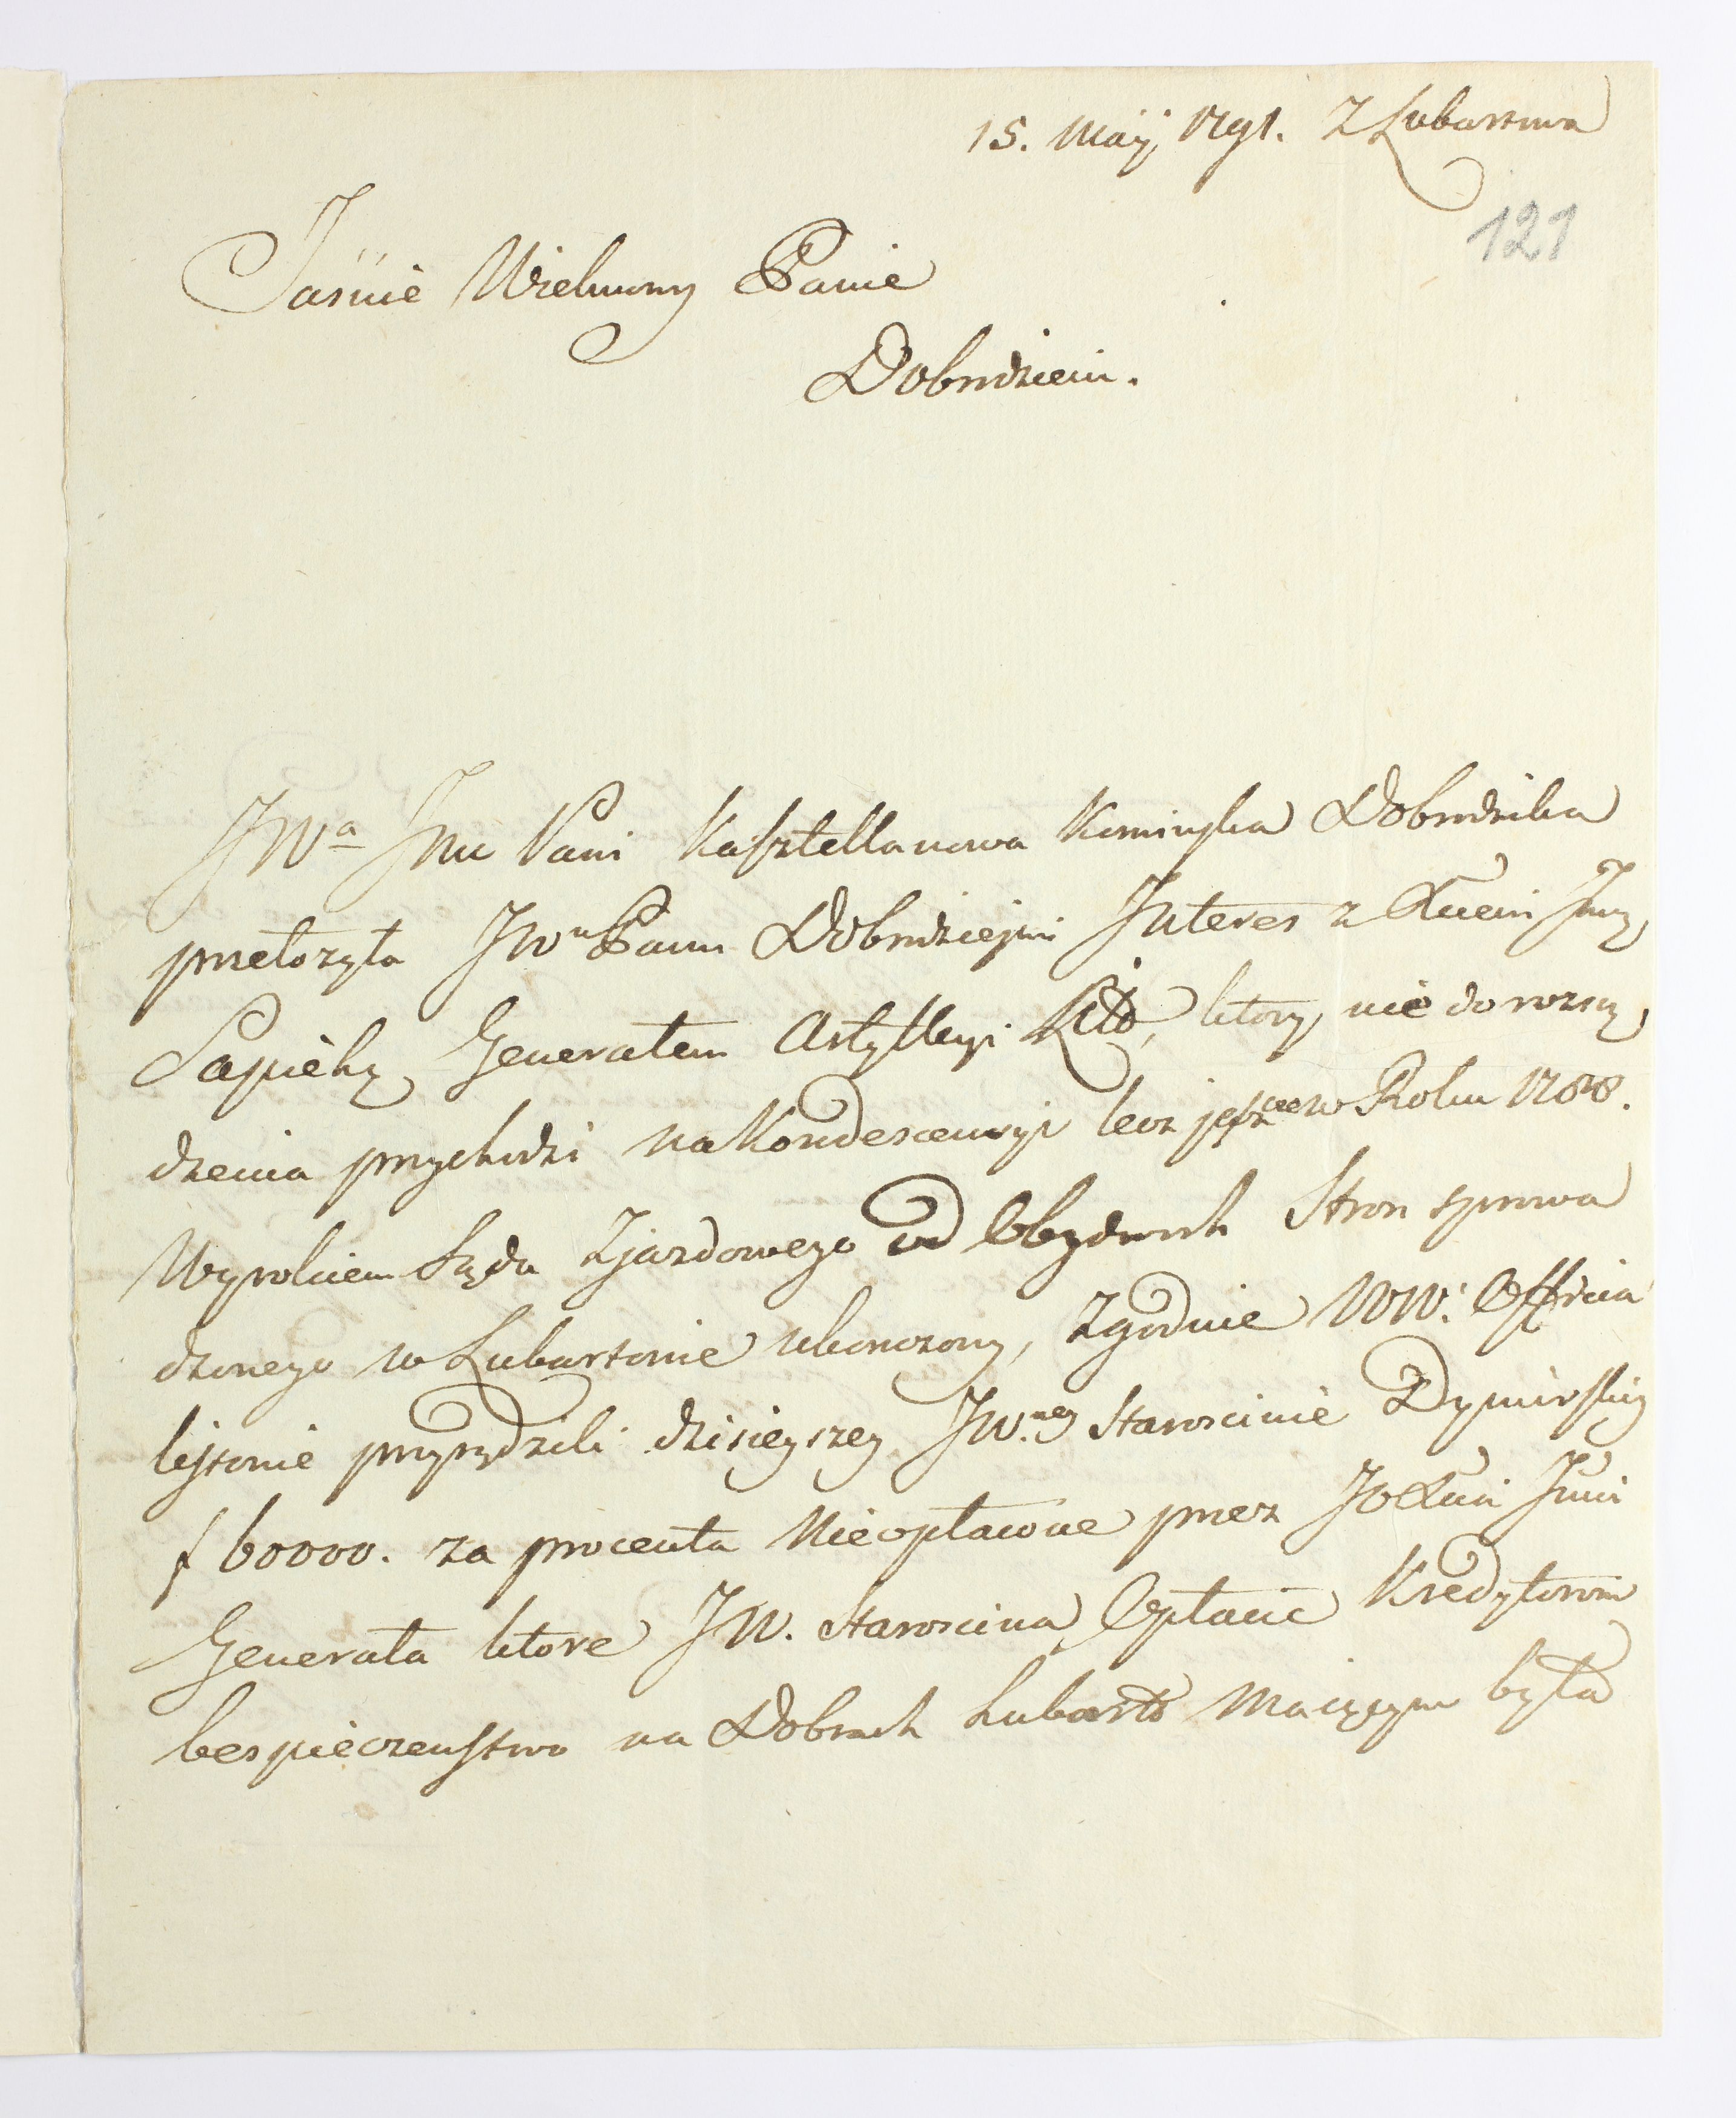 15. Maij 1791. Z Lubartowa
121
Jaśnie Wielmożny Panie
Dobrodzieiu.
JWa Jmc Pani Kasztellanowa Kaminska Dobrodzika
przełozyła JWu Panu Dobrodziejowi Interes z Xciem Jmcią
Sapiehą Generałem Artylleryi Litt, ktory nie do rozsą
dzenia przychodzi na Kondescensyi lecz jeszcze w Roku 1788.
Wyrokiem Sądu Zjazdowego od Obydwoch Stron sprowa
dzonego w Lubartowie ukonczony, Zgodnie WW: Officia
listowie przysądzili dzisieyszey JW.ney Starościnie Dymirskiey
f 60000. za procenta Nieopłacone przez JOXcia Jmci
Generała ktore JW. Starościna Opłacić Kredytorom
bespieczenstwo na Dobrach Lubarto Maiącym była